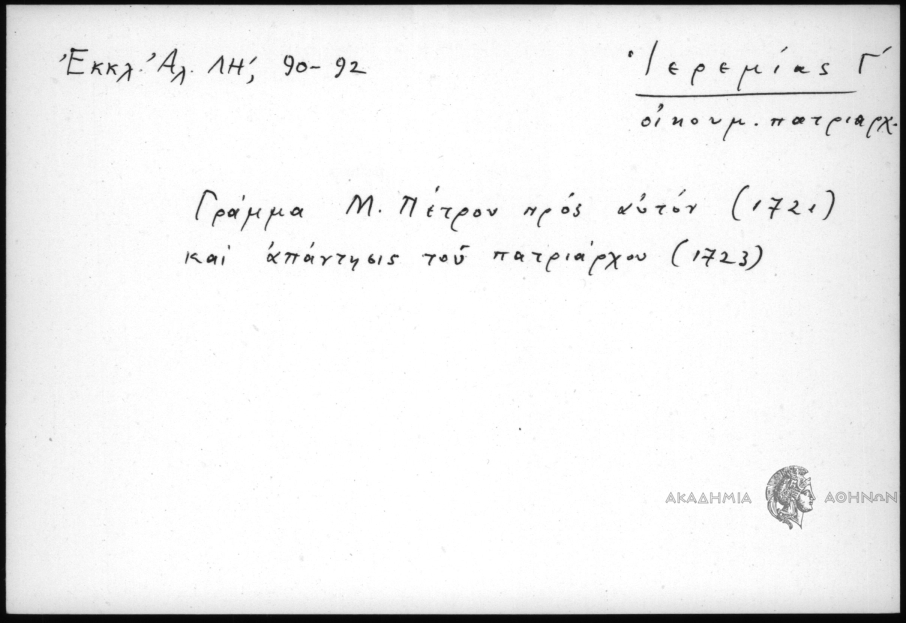 Ἐκκλ. Ἀλ. ΛΗ΄, 90-92
Ἱερεμίας Γ΄
οἰκουμ. πατριάρχ.
Γράμμα Μ. Πέτρου πρός αὐτόν (1721)
καί ἀπάντησις τοῦ πατριάρχου (1723)
ΑΚΑΔΗΜΙΑ ΑΘΗΝΩΝ